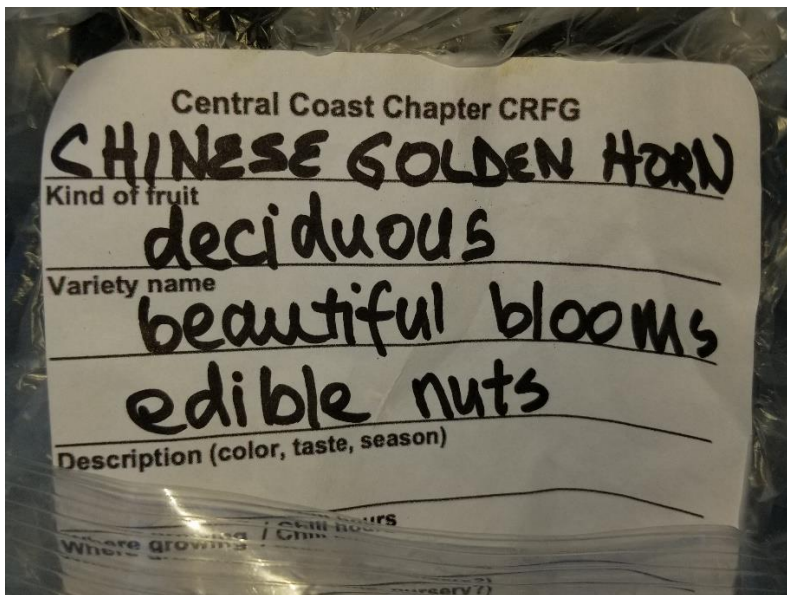 Central Coast Chapter CRFG
CHINESE GOLDEN HORN
Kind of fruit
deciduous
Variety name
beautiful blooms
edible nuts
Description (color, taste, season)
Where growing / Chill hours
nursery?)